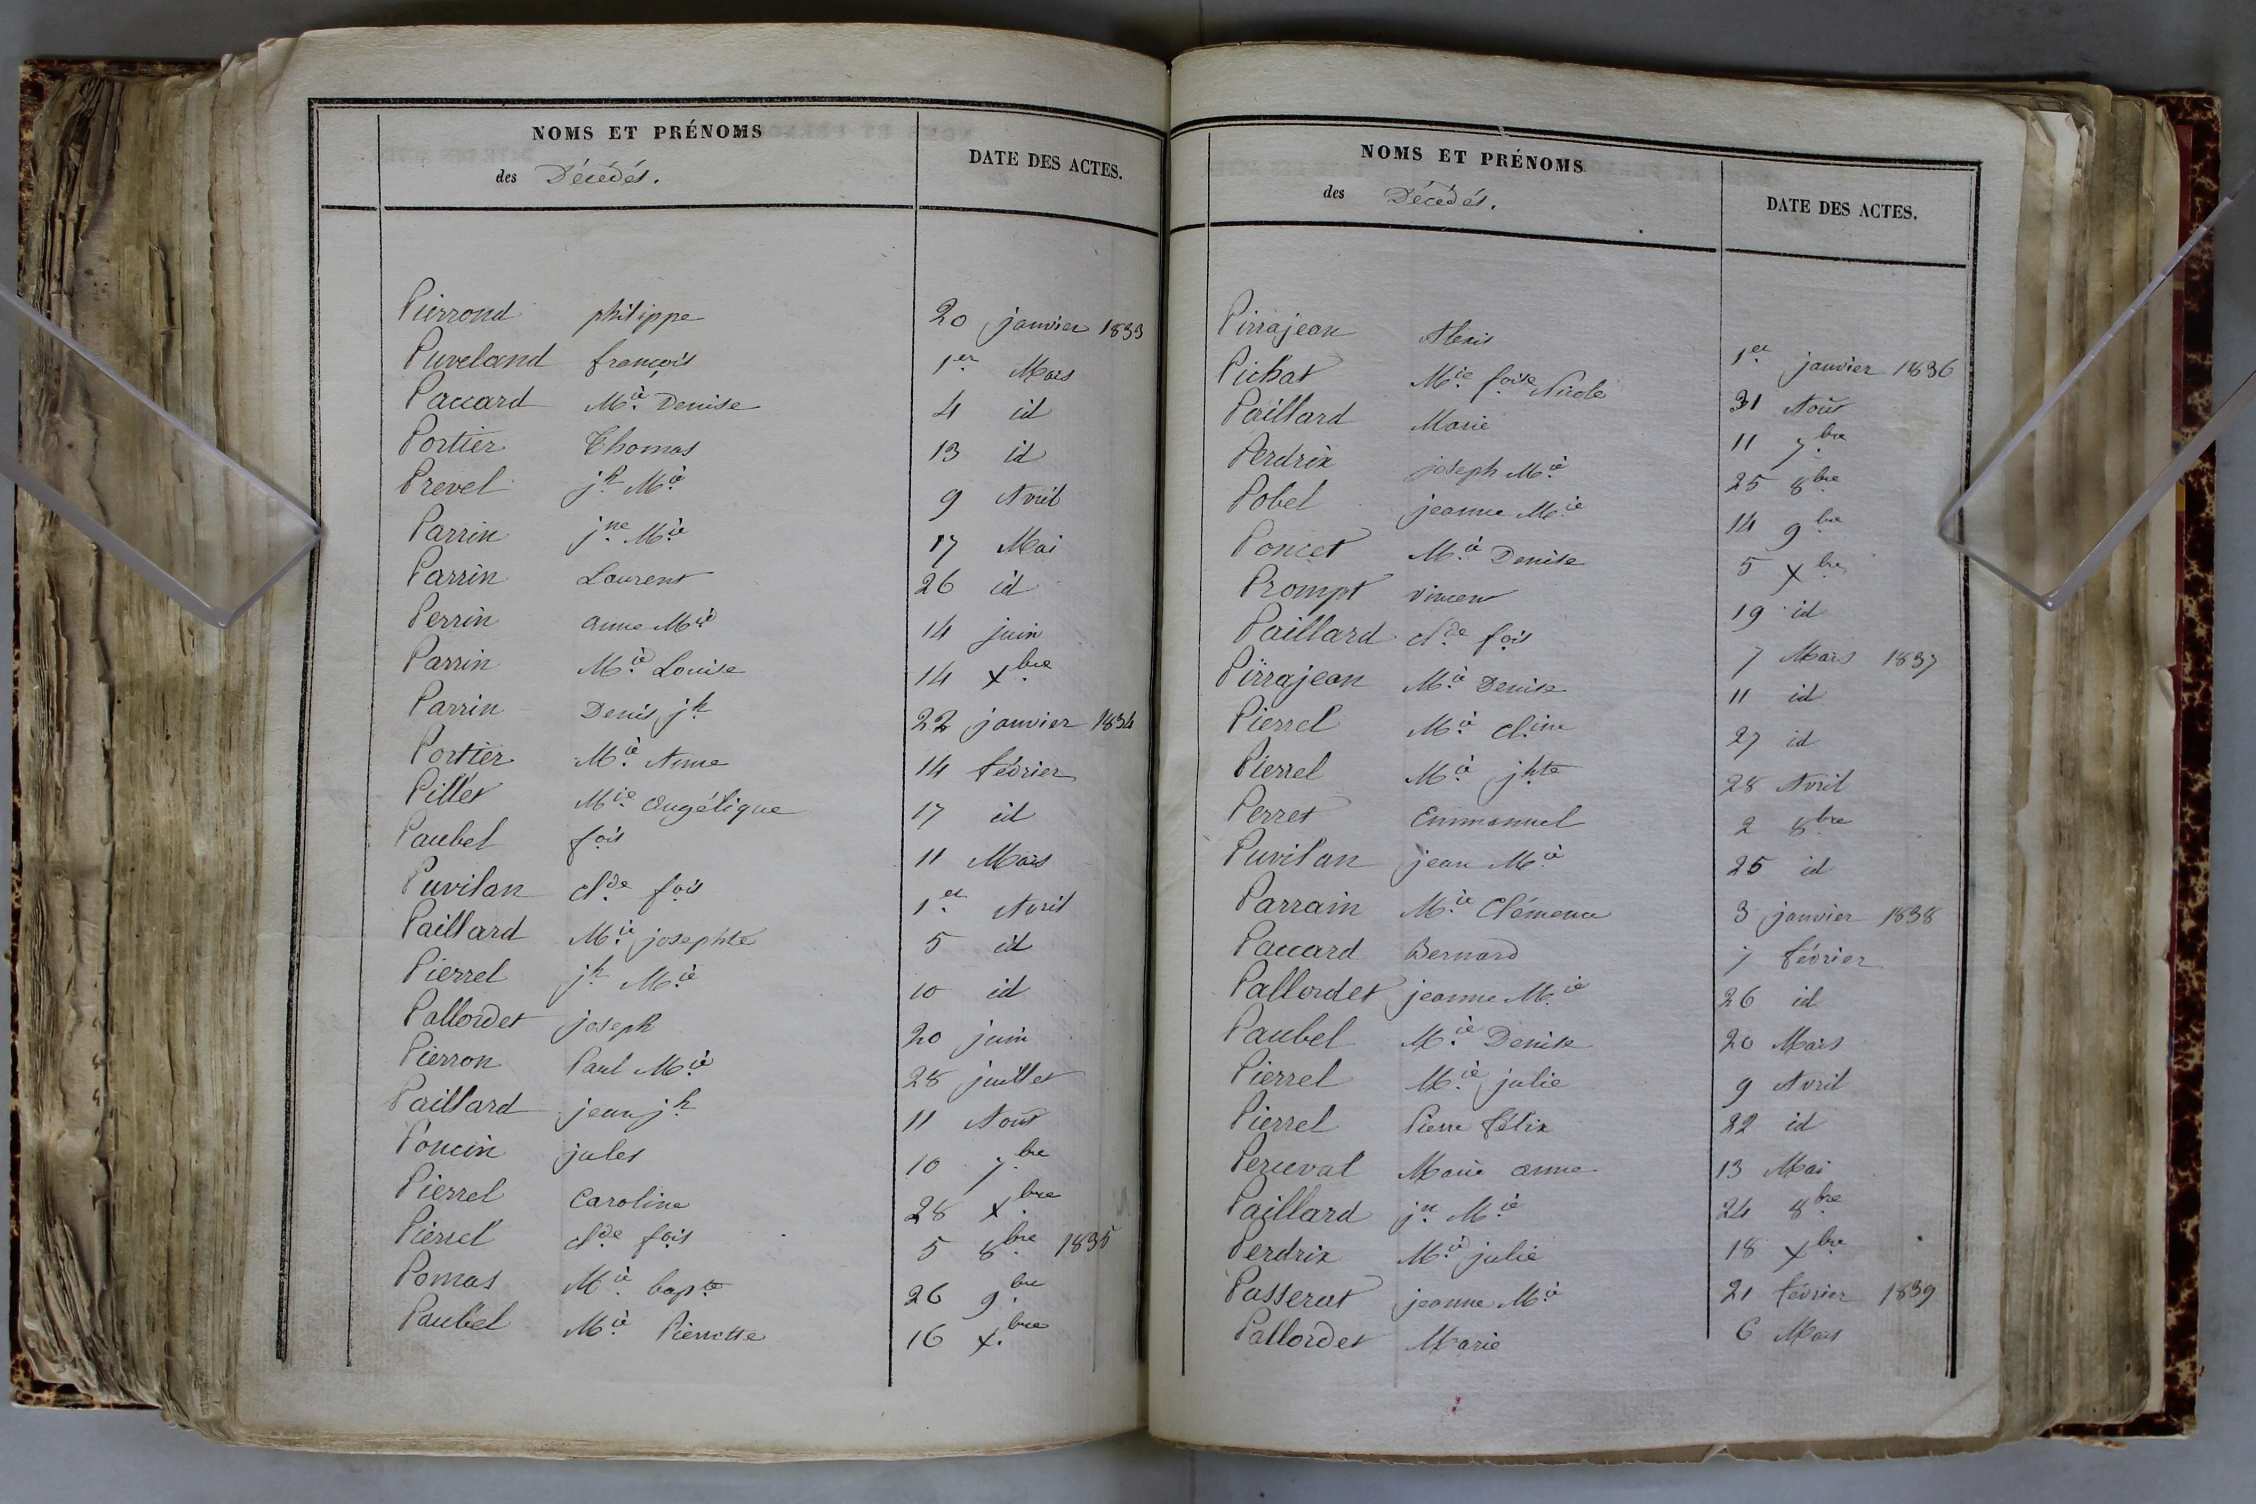 NOMS ET PRÉNOMS
des Décédés.
DATE DES ACTES.
Pierrond philippe 20 janvier 1833
Puveland françois 1er Mars
Paccard Mie Denise 4 id
Portier Thomas 13 id
Prevel jh Mie 9 Avril
Parrin jne Mie 17 Mai
Parrin Laurent 26 id
Perrin anne Mie 14 juin
Parrin Mie Louise 14 xbre
Parrin Denis jh 22 janvier 1834
Portier Mie Anne 14 février
Pillet Mie Angélique 17 id
Paubel fois 11 Mars
Puvilan clde fois 1er Avril
Paillard Mie josephte 5 id
Pierrel jh Mie 10 id
Pallordet joseph 20 juin
Pierron Paul Mie 28 juillet
Paillard jean jh 11 Août
Poncin jules 10 7bre
Pierrel Caroline 28 xbre
Pierrel clde fois 5 8bre 1835
Pomas Mie bapte 26 9bre
Paubel Mie Pierrette 16 xbre
NOMS ET PRÉNOMS
des Décédés.
DATE DES ACTES.
Pirrajean Alexis 1er janvier 1836
Pichat Mie foise Nicole 31 Août
Paillard Marie 11 7bre
Perdrix joseph Mie 25 8bre
Pobel jeanne Mie 14 9bre
Poncet Mie Denise 5 xbre
Prompt vincent 19 id
Paillard clde fois 7 Mars 1837
Pirrajean Mie Denise 11 id
Pierrel Mie cline 27 id
Pierrel Mie jhte 28 Avril
Perret Emmanuel 2 8bre
Puvilan jean Mie 25 id
Parrain Mie Clémence 3 janvier 1838
Paccard Bernard 7 février
Pallordet jeanne Mie 26 id
Paubel Mie Denise 20 Mars
Pierrel Mie julie 9 Avril
Pierrel Pierre félix 22 id
Perceval Marie anne 13 Mai
Paillard jn Mie 24 8bre
Perdrix Mie julie 18 xbre
Passerat jeanne Mie 21 février 1839
Pallordet Marie 6 Mars